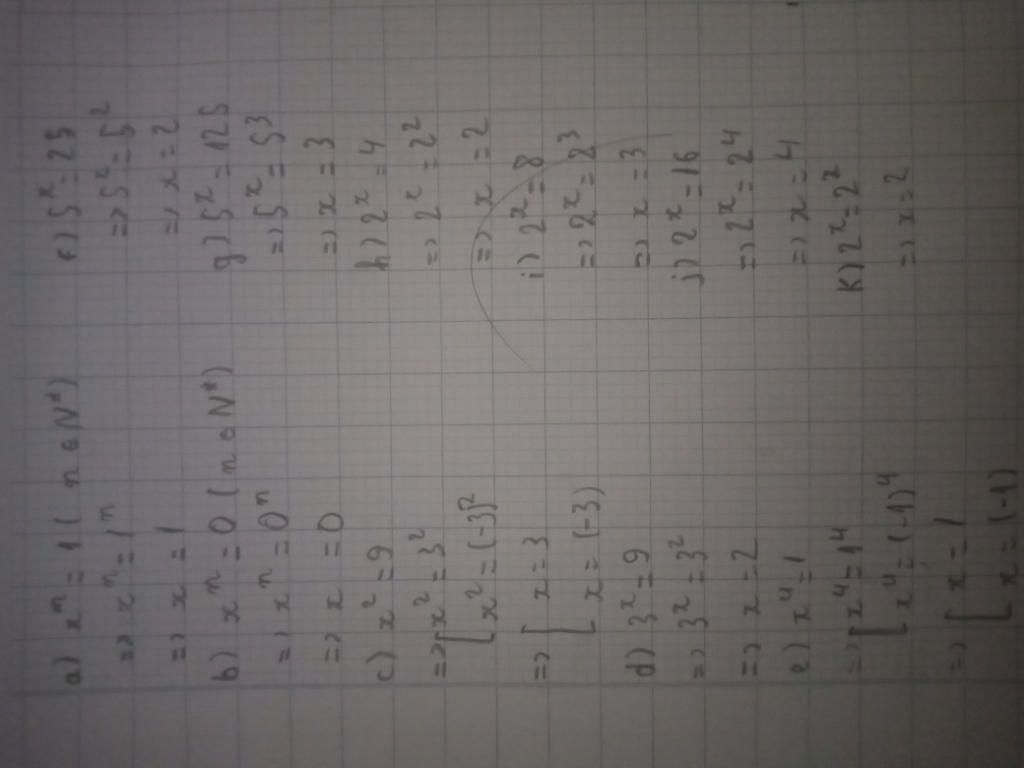 a) xⁿ = 1 ( n ∈ N*)
=> xⁿ = 1ⁿ
=> x = 1
b) xⁿ = 0 ( n ∈ N*)
=> xⁿ = 0ⁿ
=> x = 0
c) x² = 9
=> [ x² = 3²
[ x² = (-3)²
=> [ x = 3
[ x = (-3)
d) 3ˣ = 9
=> 3ˣ = 3²
=> x = 2
e) x⁴ = 1
=> [ x⁴ = 1⁴
[ x⁴ = (-1)⁴
=> [ x = 1
[ x = (-1)
f) 5ˣ = 25
=> 5ˣ = 5²
=> x = 2
g) 5ˣ = 125
=> 5ˣ = 5³
=> x = 3
h) 2ˣ = 4
=> 2ˣ = 2²
=> x = 2
i) 2ˣ = 8
=> 2ˣ = 2³
=> x = 3
j) 2ˣ = 16
=> 2ˣ = 2⁴
=> x = 4
k) 2ˣ = 2²
=> x = 2